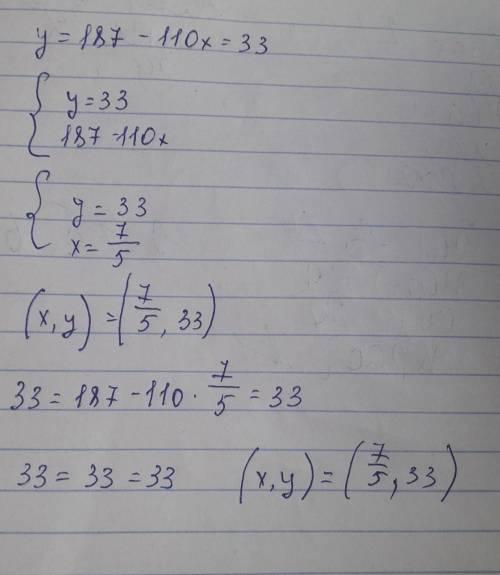 y = 187 - 110x = 33
{ y = 33
187 - 110x
{ y = 33
x = 7/5
(x, y) = (7/5, 33)
33 = 187 - 110 · 7/5 = 33
33 = 33 = 33 (x, y) = (7/5, 33)